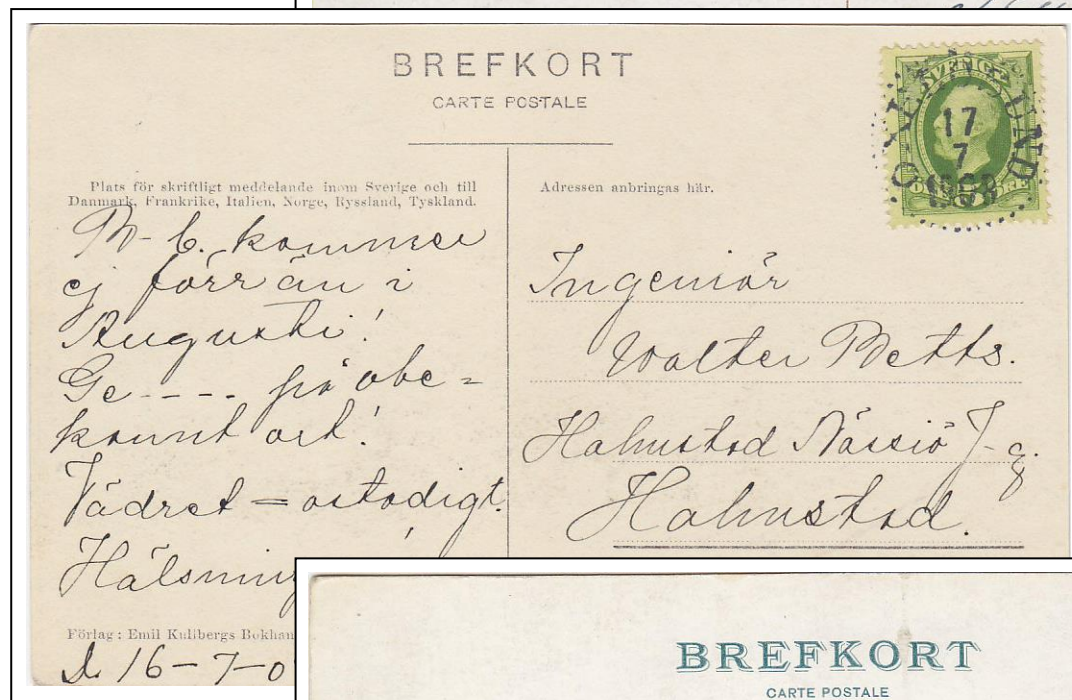 BREFKORT
CARTE POSTALE
SVERIGE
17
7
Plats för skriftligt meddelande inom Sverige och till
Danmark, Frankrike, Italien, Norge, Ryssland, Tyskland.
B-b. kommer
ej förr än i
Augusti!
Ge---- på obe=
kannt ort!
Vädret = ostadigt.
Hälsning
Förlag: Emil Kullbergs Bokhan
d. 16-7-0
Adressen anbringas här.
Ingeniör
Walter Betts.
Halmstad Nässjö J-g.
Halmstad.
BREFKORT
CARTE POSTALE